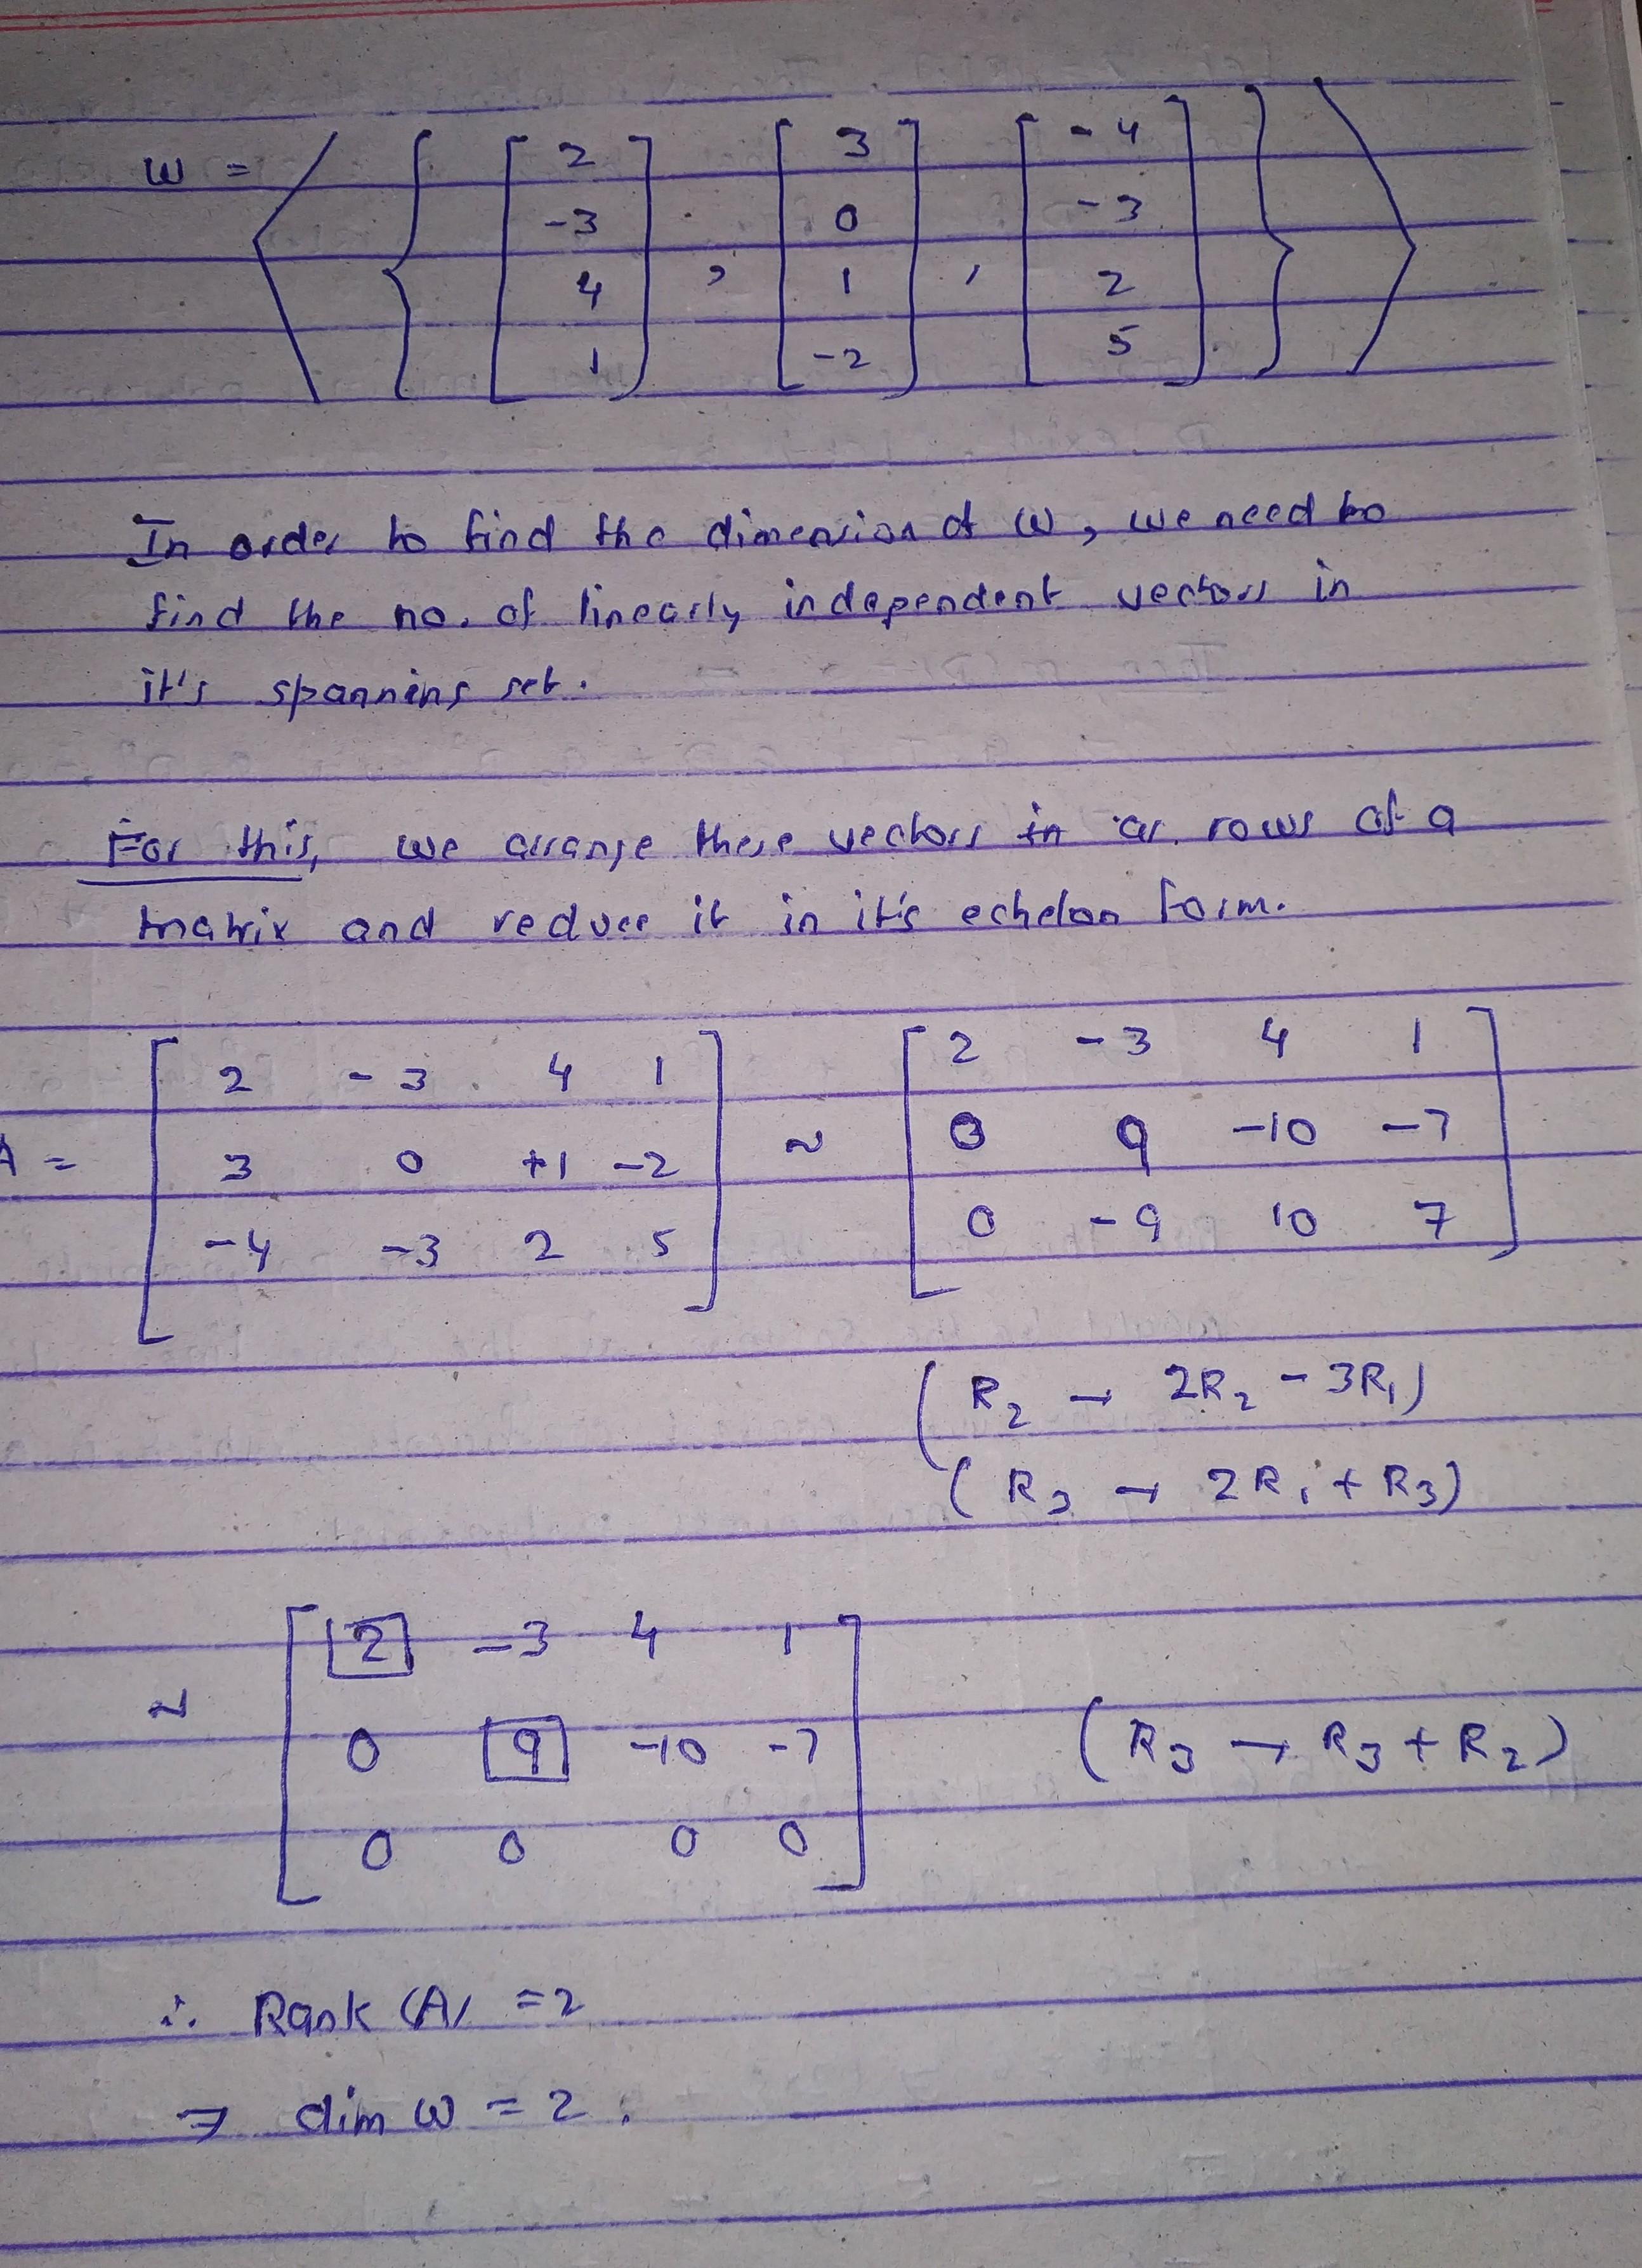 W = ⟨ { [ 2 -3 4 1 ] , [ 3 0 1 -2 ] , [ -4 -3 2 5 ] } ⟩
In order to find the dimension of W, we need to
find the no. of linearly independent vectors in
it's spanning set.
For this, we arrange these vectors in as rows of a
matrix and reduce it in it's echelon form.
A = [ 2 -3 4 1 ] ~ [ 2 -3 4 1 ]
[ 3 0 +1 -2 ] [ 0 9 -10 -7 ]
[ -4 -3 2 5 ] [ 0 -9 10 7 ]
( R₂ → 2R₂ - 3R₁)
( R₃ → 2R₁ + R₃)
~ [ 2 -3 4 1 ]
[ 0 9 -10 -7 ] ( R₃ → R₃ + R₂)
[ 0 0 0 0 ]
∴ Rank (A) = 2
⇒ dim W = 2.